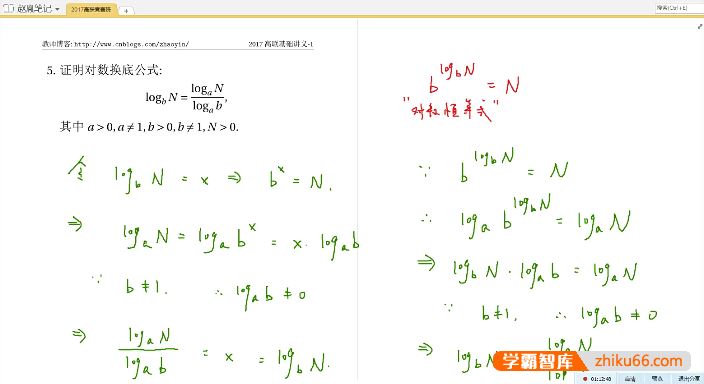 赵胤笔记
2017高联寒春班
搜索(Ctrl+E)
教师博客: http://www.cnblogs.com/zhaoyin/
2017 高联基础讲义-1
5. 证明对数换底公式:
log_b N = log_a N / log_a b,
其中 a > 0, a ≠ 1, b > 0, b ≠ 1, N > 0.
令 log_b N = x ⇒ b^x = N.
⇒ log_a N = log_a b^x = x · log_a b
∵ b ≠ 1. ∴ log_a b ≠ 0
⇒ log_a N / log_a b = x = log_b N.
b^{log_b N} = N
"对数恒等式"
∵ b^{log_b N} = N
∴ log_a b^{log_b N} = log_a N
⇒ log_b N · log_a b = log_a N
∵ b ≠ 1. ∴ log_a b ≠ 0
⇒ log_b N
学霸智库
zhiku66.com
01:12:48
退出分享